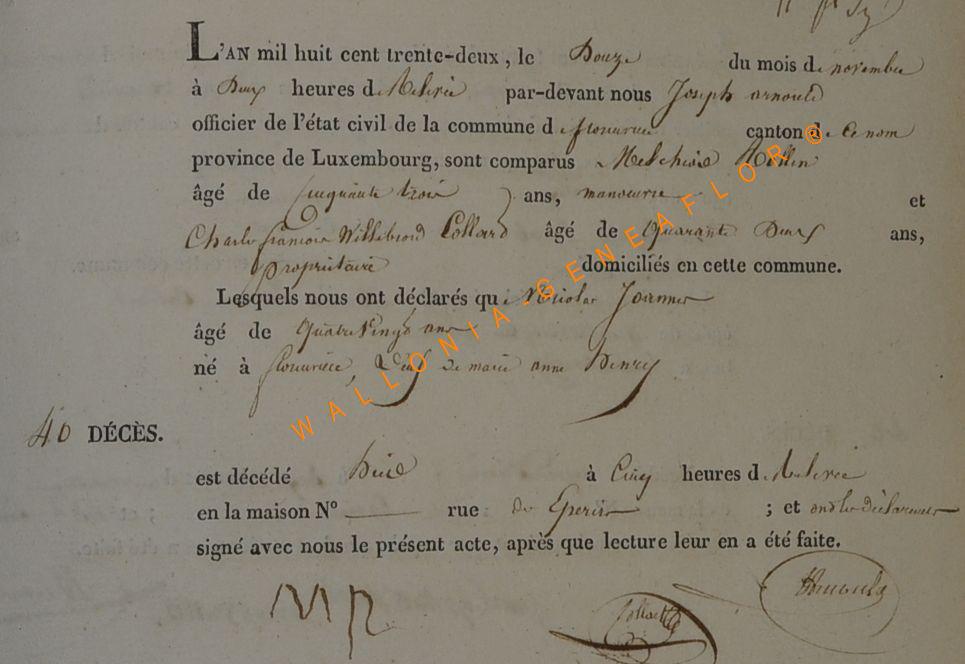 L'AN mil huit cent trente-deux, le Douze du mois de novembre
à Deux heures de Relevée par-devant nous Joseph arnould
officier de l'état civil de la commune de canton de ce nom
province de Luxembourg, sont comparus Melchior
âgé de Cinquante trois ans, manoeuvre et
Charles françois Willibrord Collard âgé de Quarante Deux ans,
propriétaire domiciliés en cette commune.
Lesquels nous ont déclarés que Nicolas Joannes
âgé de Quatre Vingt ans
né à , Veuf de marie anne Henry
40 DÉCÈS.
est décédé hier à Cinq heures de Relevée
en la maison N° — rue des ; et ont les déclarants
signé avec nous le présent acte, après que lecture leur en a été faite.
WALLONIA-GENEAFLOR®
MR Collard Arnould